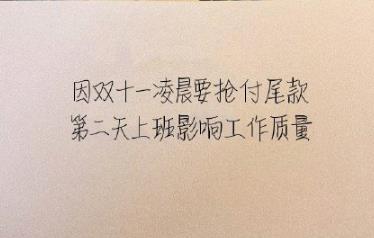 因双十一凌晨要抢付尾款
第二天上班影响工作质量